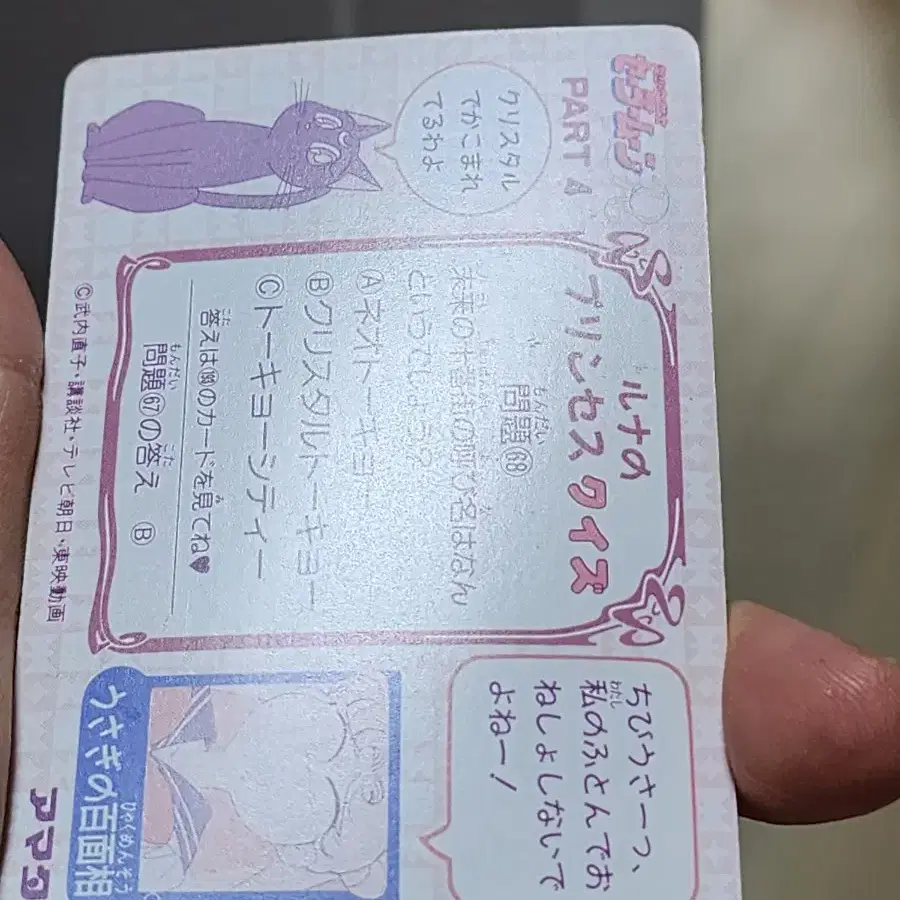 セーラームーン
PART 4
クリスタル
でかこまれ
てるわよ
ルナの
プリンセスクイズ
もんだい
問題68
未来の十番街の呼び名はなん
というでしょう?
Ⓐネオトーキョー
Ⓑクリスタルトーキョー
Ⓒトーキョーシティー
答えは のカードを見てね♥
もんだい こた
問題67の答え Ⓑ
©武内直子・講談社・テレビ朝日・東映動画
ちびうさーっ、
私のふとんでお
ねしょしないで
よねー!
うさぎの百面相
アマダ